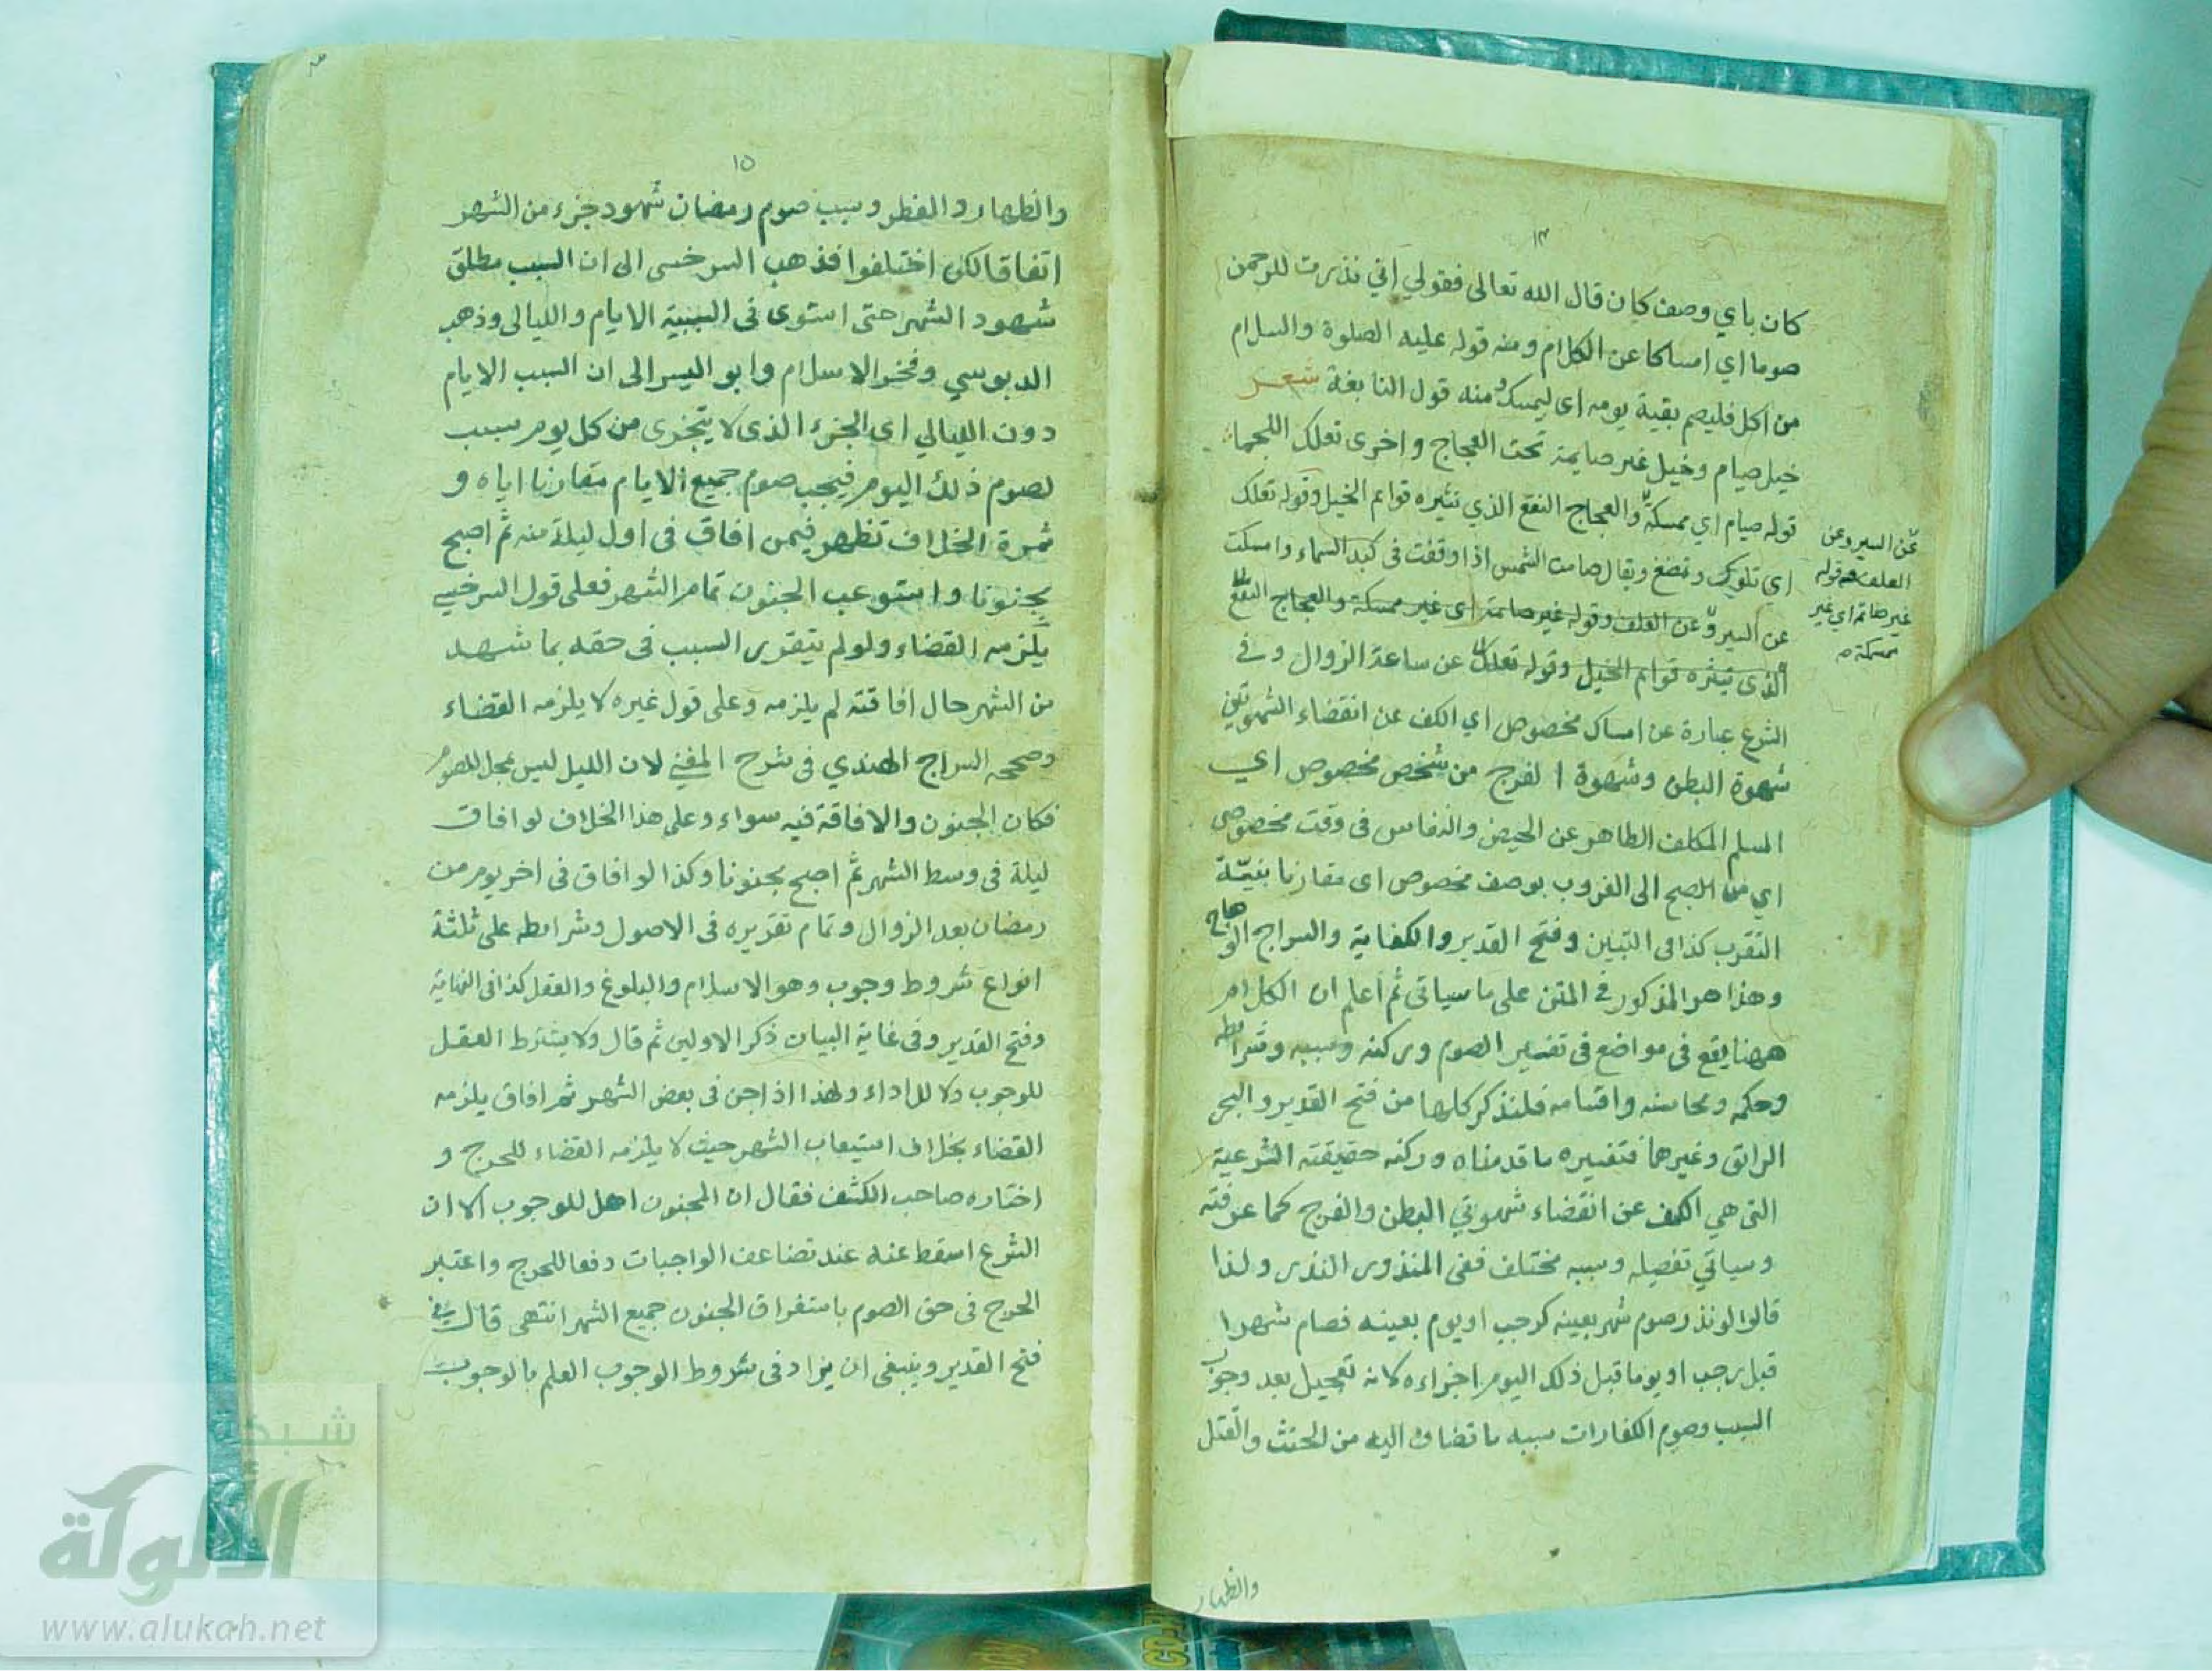 ١٤
كان باي وصف كان قال الله تعالى فقولي اني نذرت للرحمن
صوما اي امساكا عن الكلام ومنه قوله عليه الصلوة والسلام
من اكل فليصم بقية يومه اي ليمسك ومنه قول النابغة شعر
خيل صيام وخيل غير صايمة تحت العجاج واخرى تعلك اللجما
قوله صيام اي ممسكة والعجاج النقع الذي تثيره قوايم الخيل وقوله تعلك
اي تلوك وتمضغ ويقال صامت الشمس اذا وقفت في كبد السماء وامسكت
عن السير و عن العلف وقوله غير صائمة اي غير ممسكة والعجاج النقع
الذي تيثره قوايم الخيل وقوله تعلك عن ساعة الزوال وفي
الشرع عبارة عن امساك مخصوص اي الكف عن انقضاء الشهوتين
شهوة البطن وشهوة الفرج من شخص مخصوص اي
المسلم المكلف الطاهر عن الحيض والنفاس في وقت مخصوص
اي من الصبح الى الغروب بوصف مخصوص اى مقارنا بنية
التقرب كذا فى التبيين وفتح القدير والكفاية والسراج الوهاج
وهذا هو المذكور في المتن على ما سياتى ثم اعلم ان الكلام
ههنا يقع فى مواضع فى تفسير الصوم وركنه وسببه وشرايطه
وحكمه ومحاسنه واقسامه فلنذكر كلها من فتح القدير والبحر
الرائق وغيرهما فتفسيره ما قدمناه وركنه حقيقته الشرعية
التى هي الكف عن انقضاء شهوتي البطن والفرج كما عرفته
وسياتي تفصيله وسببه مختلف ففى المنذور النذر ولذا
قالوا لو نذر صوم شهر بعينه كرجب او يوم بعينه فصام شهرا
قبل رجب او يوما قبل ذلك اليوم اجزاءه لانه تعجيل بعد وجوب
السبب وصوم الكفارات سببه ما تضاف اليه من الحنث والقتل
عن السير وعن
العلف قوله
غير صائم اي غير
ممسكة
والظهار
١٥
والظهار والفطر وسبب صوم رمضان شهود جزء من الشهر
اتفاقا لكن اختلفوا فذهب السرخسى الى ان السبب مطلق
شهود الشهر حتى استوى فى السببية الايام والليالى وذهب
الدبوسي وفخر الاسلام وابو اليسر الى ان السبب الايام
دون الليالي اي الجزء الذى لا يتجزى من كل يوم سبب
لصوم ذلك اليوم فيجب صوم جميع الايام مقارنا اياه و
ثمرة الخلاف تظهر فيمن افاق فى اول ليلة منه ثم اصبح
مجنونا واستوعب الجنون تمام الشهر فعلى قول السرخسي
يلزمه القضاء ولو لم يتقرر السبب فى حقه بما شهد
من الشهر حال افاقته لم يلزمه وعلى قول غيره لا يلزمه القضاء
وصححه السراج الهندي فى شرح المغني لان الليل ليس بمحل للصوم
فكان الجنون والافاقة فيه سواء وعلى هذا الخلاف لو افاق
ليلة فى وسط الشهر ثم اصبح مجنونا وكذا لو افاق فى اخر يوم من
رمضان بعد الزوال وتمام تقديره فى الاصول وشرايطه على ثلثة
انواع شروط وجوب وهو الاسلام والبلوغ والعقل كذا فى النهاية
وفتح القدير وفى غاية البيان ذكر الاولين ثم قال ولا يشترط العقل
للوجوب ولا للاداء ولهذا اذا جن فى بعض الشهر ثم افاق يلزمه
القضاء بخلاف استيعاب الشهر حيث لا يلزمه القضاء للحرج و
اختاره صاحب الكشف فقال ان المجنون اهل للوجوب الا ان
الشرع اسقط عنه عند تضاعف الواجبات دفعا للحرج واعتبر
الحرج فى حق الصوم باستغراق الجنون جميع الشهر انتهى قال في
فتح القدير وينبغى ان يزاد فى شروط الوجوب العلم بالوجوب
شبكة
الألوكة
www.alukah.net